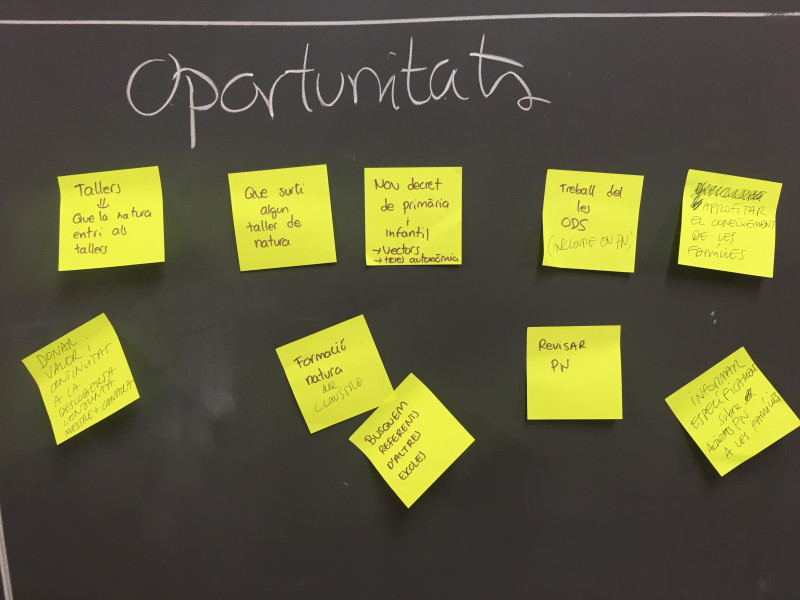 Oportunitats
Tallers
⇓
Que la natura
entri als
tallers
Que surti
algun
taller de
natura
Nou decret
de primària
i
Infantil
→ Vectors
→ Hores autonòmia
Treball del
les
ODS
(INCLOURE EN PN)
APROFITAR
EL CONEIXEMENT
DE LES
FAMÍLIES
DONAR
VALOR i
CONTINUÏTAT
A LA
DESCOBERTA
CONJUNTA
MESTRE + CANALLA
Formació
natura
CLAUSTRE
BUSQUEM
REFERENTS
D'ALTRES
ESCOLES
REVISAR
PN
INFORMAR
ESPECÍFICAMENT
sobre
PN
A LES FAMÍLIES